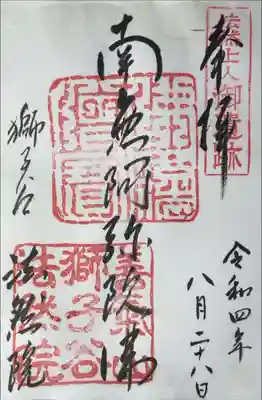 法然上人御遺跡
奉拝
令和四年
八月二十八日
南無阿弥陀佛
獅子谷
法然院
善氣山
獅子谷
法然院